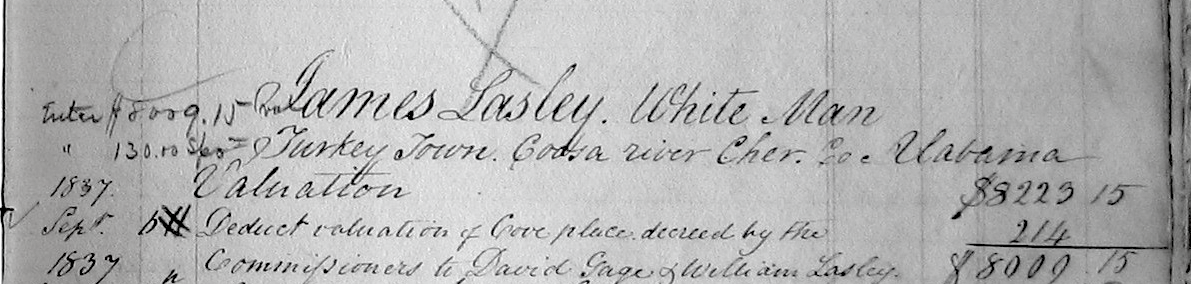 Enter $8009.15 Val James Lasley. White Man
" 130.00 Spo Turkey Town. Coosa river Cher. Co. Alabama
1837. Valuation $8223 15
Sept. Deduct valuation of Cove place decreed by the 214
1837 " Commissioners to David Gage & William Lasley. $8009 15